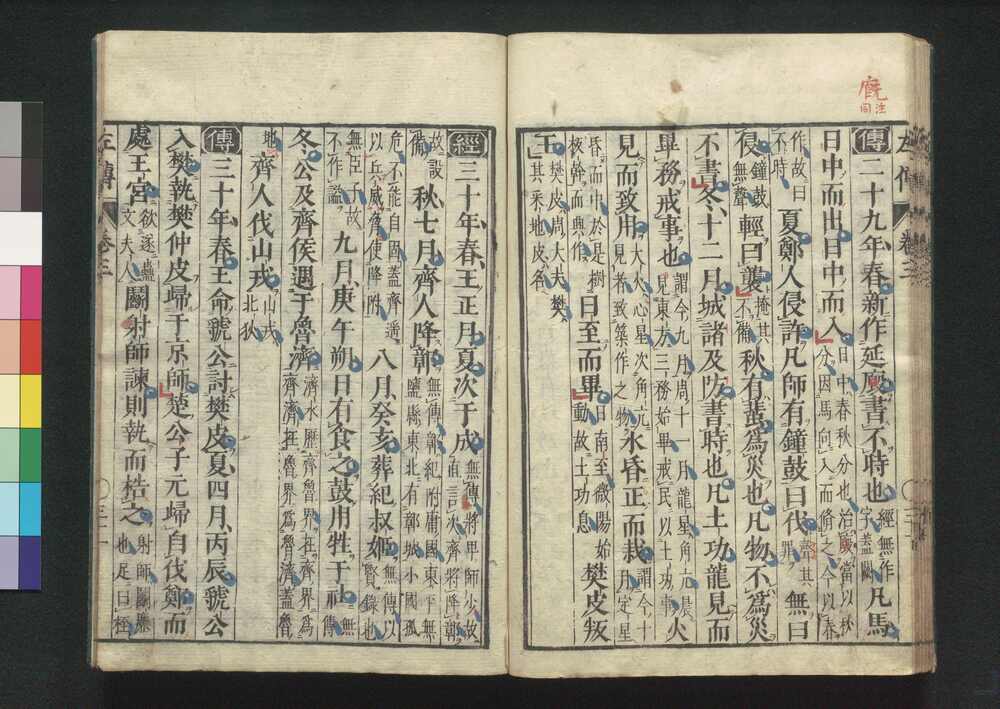 廐
注同
傳二十九年春新作延廐書不時也經無作字蓋闕凡馬
日中而出日中而入日中春秋分也治廐當以秋分因馬向入而脩之今以春
作故曰不時夏鄭人侵許凡師有鐘鼓曰伐聲其罪無曰
侵鐘鼓無聲輕曰襲掩其不備秋有蜚爲災也凡物不爲災
不書冬十二月城諸及防書時也凡土功龍見而
畢務戒事也謂今九月周十一月龍星角亢晨見東方三務始畢戒民以土功事火
見而致用大火心星次角亢見者致築作之物水昏正而栽謂今十月定星
昏而中於是樹板幹而興作日至而畢日南至微陽始動故土功息樊皮叛
王樊皮周大夫樊其采地皮名
經三十年春王正月夏次于成無傳將卑師少故直言次齊將降鄣
故設備秋七月齊人降鄣無傳鄣紀附庸國東平無鹽縣東北有鄣城小國孤
危不能自固蓋齊遙以兵威脅使降附八月癸亥葬紀叔姬無傳以賢錄也
無臣子故不作謚九月庚午朔日有食之鼓用牲于社無傳
冬公及齊侯遇于魯濟濟水歷齊魯界在齊界爲齊濟在魯界爲魯濟蓋魯
地齊人伐山戎山戎北狄
傳三十年春王命虢公討樊皮夏四月丙辰虢公
入樊執樊仲皮歸于京師楚公子元歸自伐鄭而
處王宮欲遂蠱文夫人鬭射師諫則執而梏之射師鬭廉也足曰桎
左傳 卷三